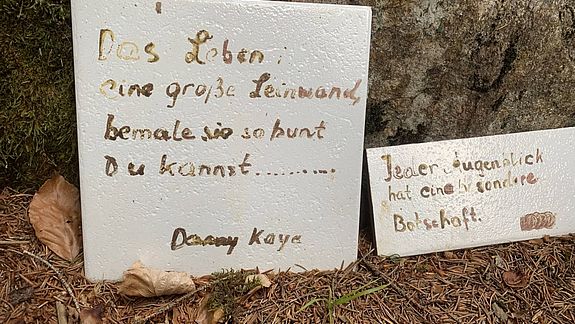 Das Leben:
eine große Leinwand,
bemale sie so bunt
Du kannst..........
Danny Kaye
Jeder Augenblick
hat eine besondere
Botschaft.